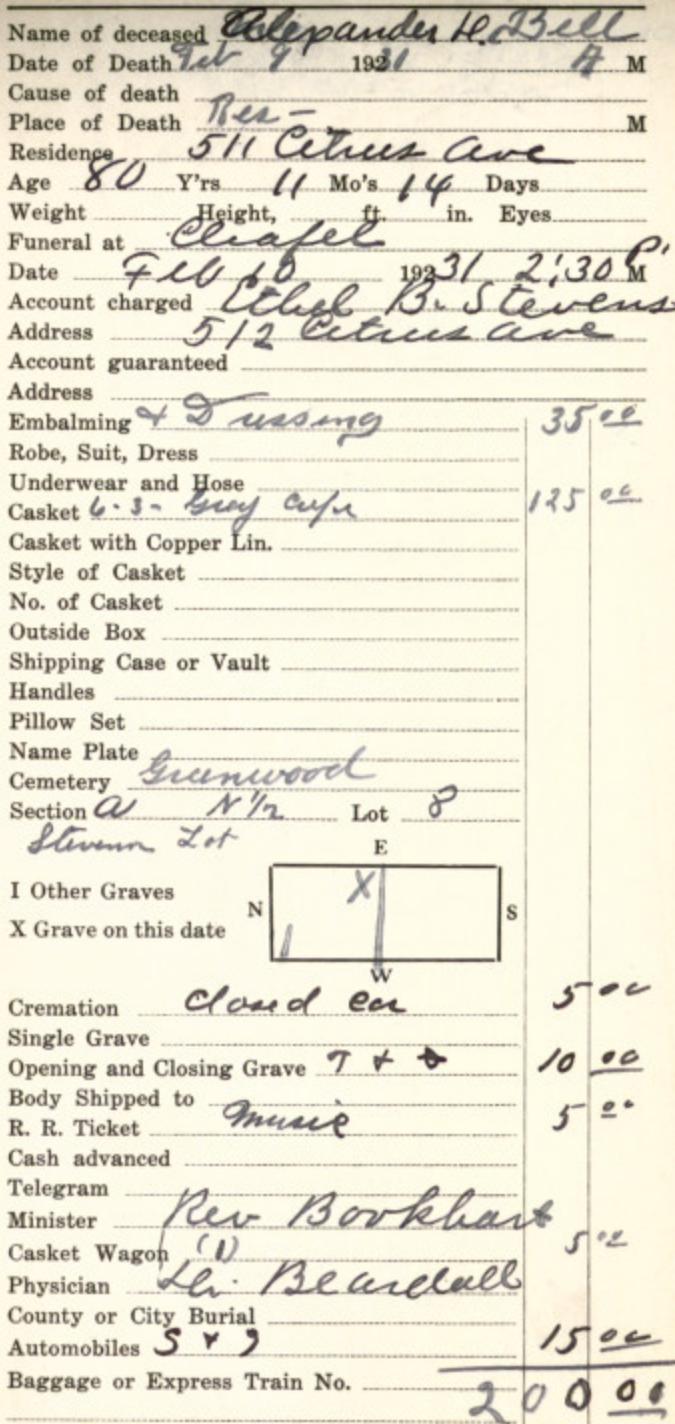 Name of deceased Alexander H. Bell
Date of Death Feb 9 1931 A M
Cause of death
Place of Death Res - M
Residence 511 Citrus Ave
Age 80 Y'rs 11 Mo's 14 Days
Weight Height, ft. in. Eyes
Funeral at Chapel
Date Feb 10 1931 2:30 P. M
Account charged Ethel B. Stevens
Address 512 Citrus Ave
Account guaranteed
Address
Embalming & Dressing 35 00
Robe, Suit, Dress
Underwear and Hose
Casket 6-3- Grey 125 00
Casket with Copper Lin.
Style of Casket
No. of Casket
Outside Box
Shipping Case or Vault
Handles
Pillow Set
Name Plate
Cemetery Greenwood
Section A N 1/2 Lot 8
Stevens Lot
E
I Other Graves
N X S
X Grave on this date
W
Cremation Closed car 5 00
Single Grave
Opening and Closing Grave T & 10 00
Body Shipped to
R. R. Ticket Music 5 00
Cash advanced
Telegram
Minister Rev Bookhart
Casket Wagon (1) 5 00
Physician Dr. Beardall
County or City Burial
Automobiles S & 15 00
Baggage or Express Train No.
200 00